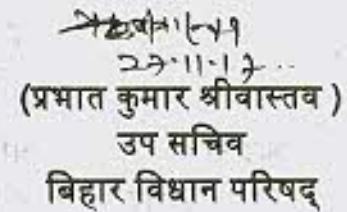 27.11.17
(प्रभात कुमार श्रीवास्तव )
उप सचिव
बिहार विधान परिषद्